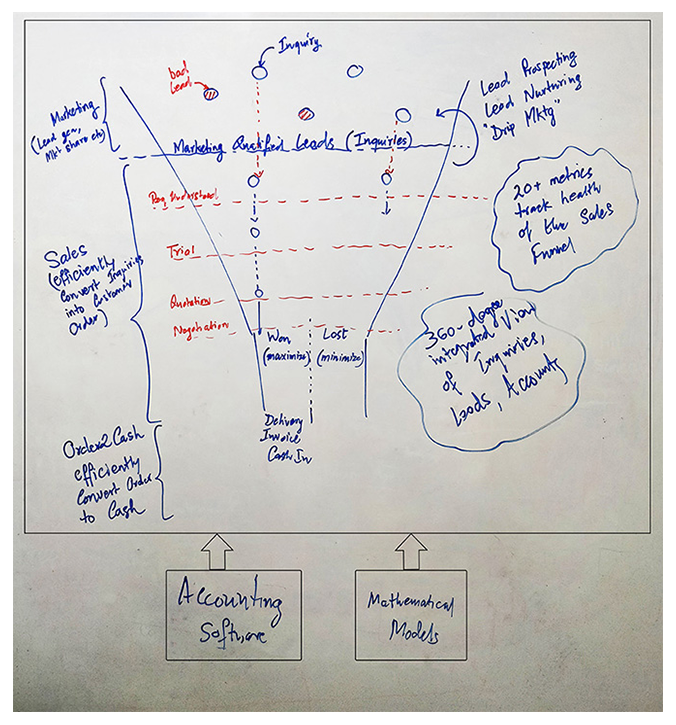 Inquiry
bad
Lead
Marketing
(Lead gen,
Mkt share etc)
Lead Prospecting
Lead Nurturing
"Drip Mktg"
Marketing Qualified Leads (Inquiries)
20+ metrics
track health
of the Sales
Funnel
Sales
(efficiently
Convert Inquiries
into Customer
Order)
Req Understood
Trial
Quotation
Negotiation
Won
(maximize)
Lost
(minimize)
360-degree
integrated View
of Inquiries,
Leads, Accounts
Delivery
Invoice
Cash In
Order2Cash
efficiently
Convert Order
to Cash
Accounting
Software
Mathematical
Models